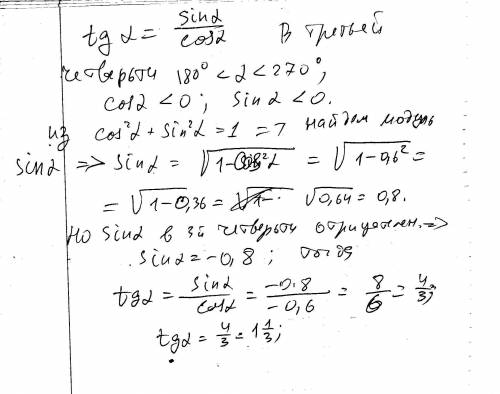 tg α = sinα / cosα В третьей
четверти 180° < α < 270°,
cosα < 0 ; sinα < 0.
из cos²α + sin²α = 1 => найдем модуль
sinα => sinα = √(1-cos²α) = √(1-0,6²) =
= √(1-0,36) = √(1- · √0,64 = 0,8.
Но sinα в 3й четверти отрицателен. =>
sinα = -0,8 ; тогда
tgα = sinα / cosα = -0,8 / -0,6 = 8/6 = 4/3;
tgα = 4/3 = 1 1/3;